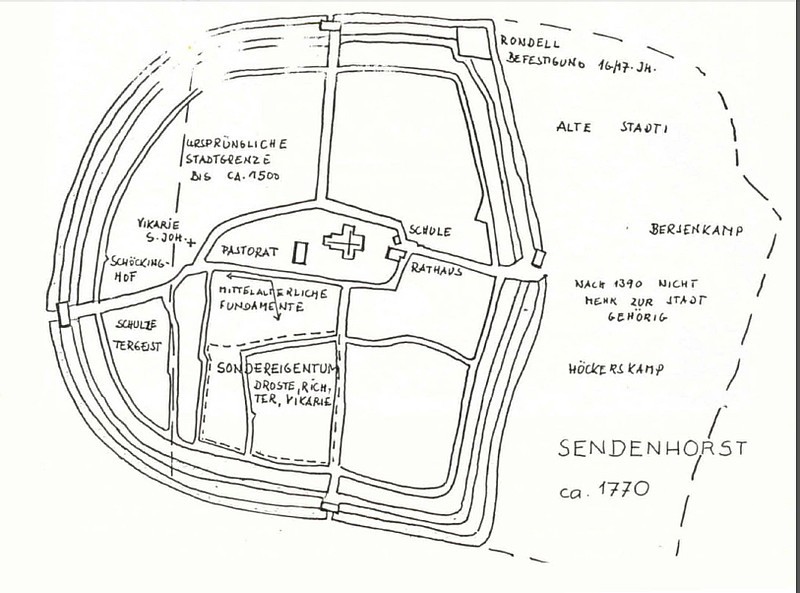 RONDELL
BEFESTIGUNG 16/17. JH.
ALTE STADT!
URSPRÜNGLICHE
STADTGRENZE
BIS CA. 1500
VIKARIE
S. JOH.
SCHÖCKING-
HOF
PASTORAT
SCHULE
RATHAUS
BERSENKAMP
MITTELALTERLICHE
FUNDAMENTE
NACH 1390 NICHT
MEHR ZUR STADT
GEHÖRIG
SCHULZE
TERGEIST
SONDEREIGENTUM
DROSTE, RICH-
TER, VIKARIE
HÖCKERSKAMP
SENDENHORST
ca. 1770